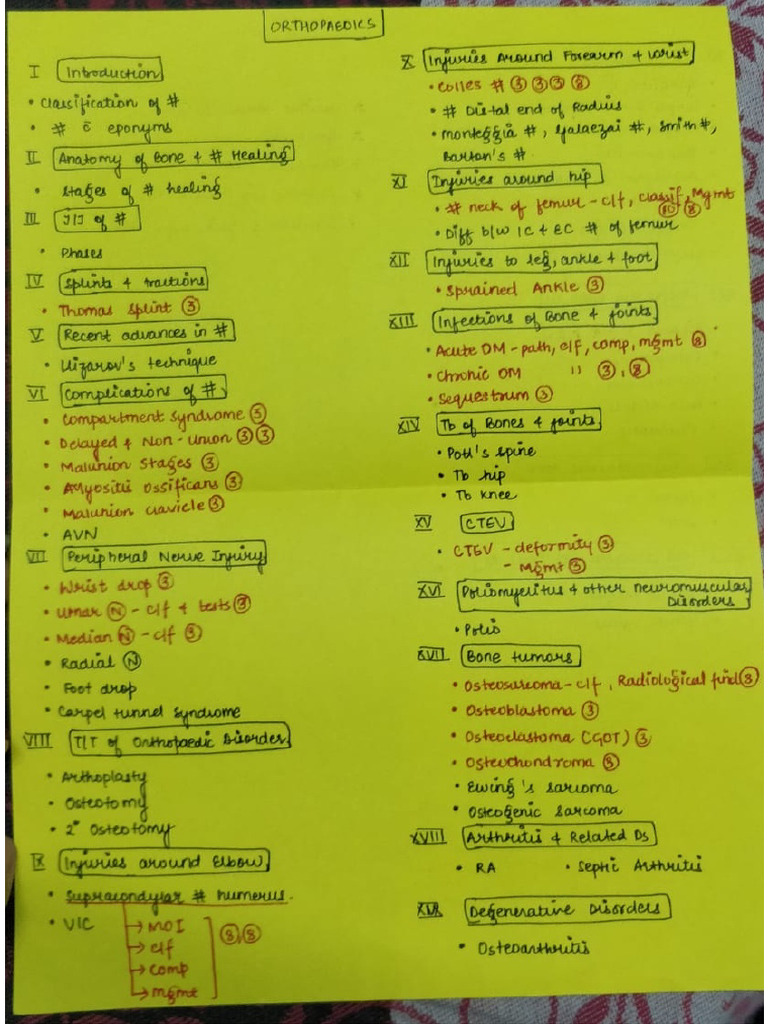 ORTHOPAEDICS
I Introduction
• Classification of #
• # c̄ eponyms
II Anatomy of Bone & # Healing
• Stages of # healing
III T/T of #
• Phases
IV Splints & tractions
• Thomas Splint ③
V Recent advances in #
• Ilizarov's technique
VI Complications of #
• Compartment Syndrome ③
• Delayed & Non-Union ③ ③
• Malunion Stages ③
• Myositis Ossificans ③
• Malunion clavicle ③
• AVN
VII Peripheral Nerve Injury
• Wrist drop ③
• Ulnar Ⓝ - c/f & tests ③
• Median Ⓝ - c/f ③
• Radial Ⓝ
• Foot drop
• Carpel tunnel Syndrome
VIII T/T of Orthopaedic Disorder
• Arthoplasty
• Osteotomy
• 2° Osteotomy
IX Injuries around Elbow
• Supracondylar # humerus.
• VIC → MOI
→ c/f ⑧ ⑧
→ comp
→ mgmt
X Injuries Around Forearm & Wrist
• Colles # ③ ③ ③ ⑧
• # Distal end of Radius
• Monteggia #, Galaezai #, Smith #,
Barton's #
XI Injuries around hip
• # neck of femur - c/f, classif, Mgmt
⑩ ⑧
• Diff b/w IC & EC # of femur
XII Injuries to leg, ankle & foot
• Sprained Ankle ③
XIII Infections of Bone & joints
• Acute OM - path, c/f, comp, mgmt ⑧
• Chronic OM " ③, ⑧
• Sequestrum ③
XIV Tb of Bones & joints
• Pott's spine
• Tb hip
• Tb knee
XV CTEV
• CTEV - deformity ③
- Mgmt ③
XVI Poliomyelitus & other neuromuscular
Disorders
• Polio
XVII Bone tumors
• Osteosarcoma - c/f, Radiological find ⑧
• Osteoblastoma ③
• Osteoclastoma (GOT) ③
• Osteochondroma ⑧
• Ewing's sarcoma
• Osteogenic sarcoma
XVIII Arthritis & Related Ds
• RA • Septic Arthritis
XIX Degenerative Disorders
• Osteoarthritis